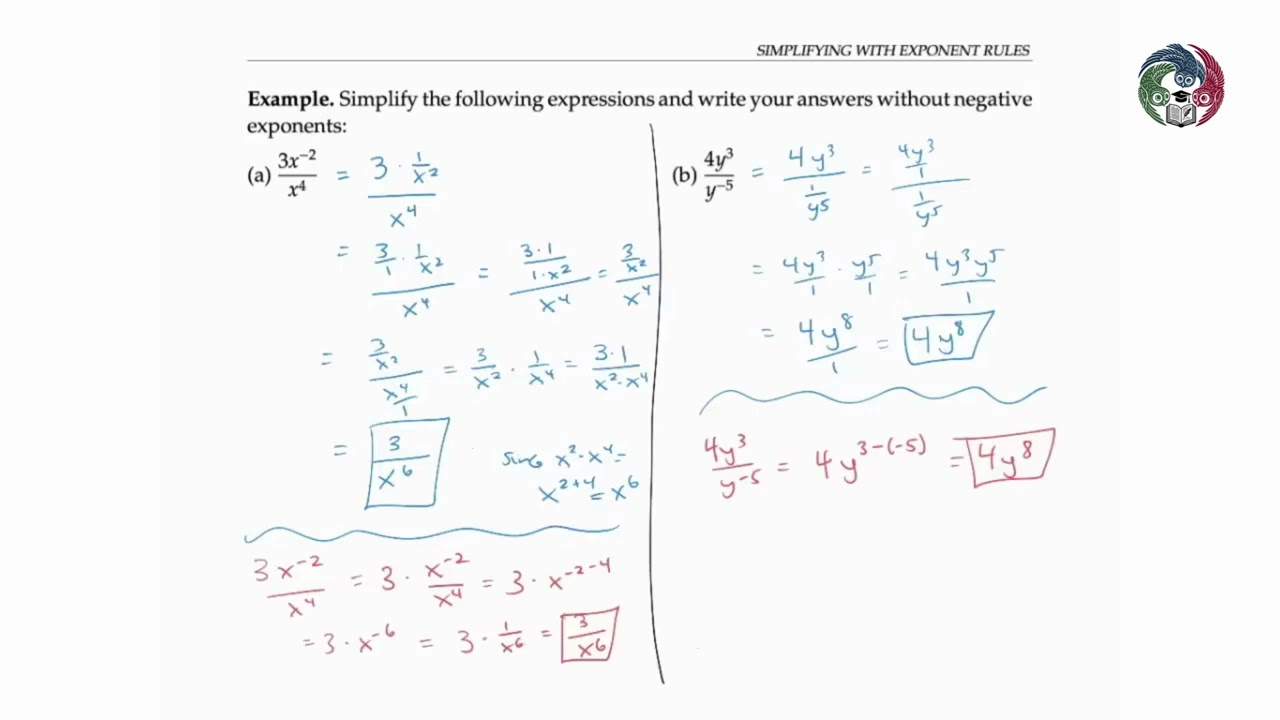 SIMPLIFYING WITH EXPONENT RULES
Example. Simplify the following expressions and write your answers without negative
exponents:
(a) 3x⁻²/x⁴ = (3 · 1/x²)/x⁴
= (3/1 · 1/x²)/x⁴ = ((3·1)/(1·x²))/x⁴ = (3/x²)/x⁴
= (3/x²)/(x⁴/1) = 3/x² · 1/x⁴ = (3·1)/(x²·x⁴)
= 3/x⁶
since x²·x⁴ =
x²⁺⁴ = x⁶
3x⁻²/x⁴ = 3 · x⁻²/x⁴ = 3 · x⁻²⁻⁴
= 3 · x⁻⁶ = 3 · 1/x⁶ = 3/x⁶
(b) 4y³/y⁻⁵ = 4y³/(1/y⁵) = (4y³/1)/(1/y⁵)
= 4y³/1 · y⁵/1 = 4y³y⁵/1
= 4y⁸/1 = 4y⁸
4y³/y⁻⁵ = 4y³⁻⁽⁻⁵⁾ = 4y⁸